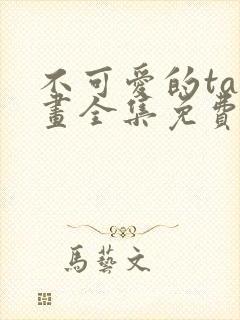 不可愛的ta
畫全集免費
馬藝文